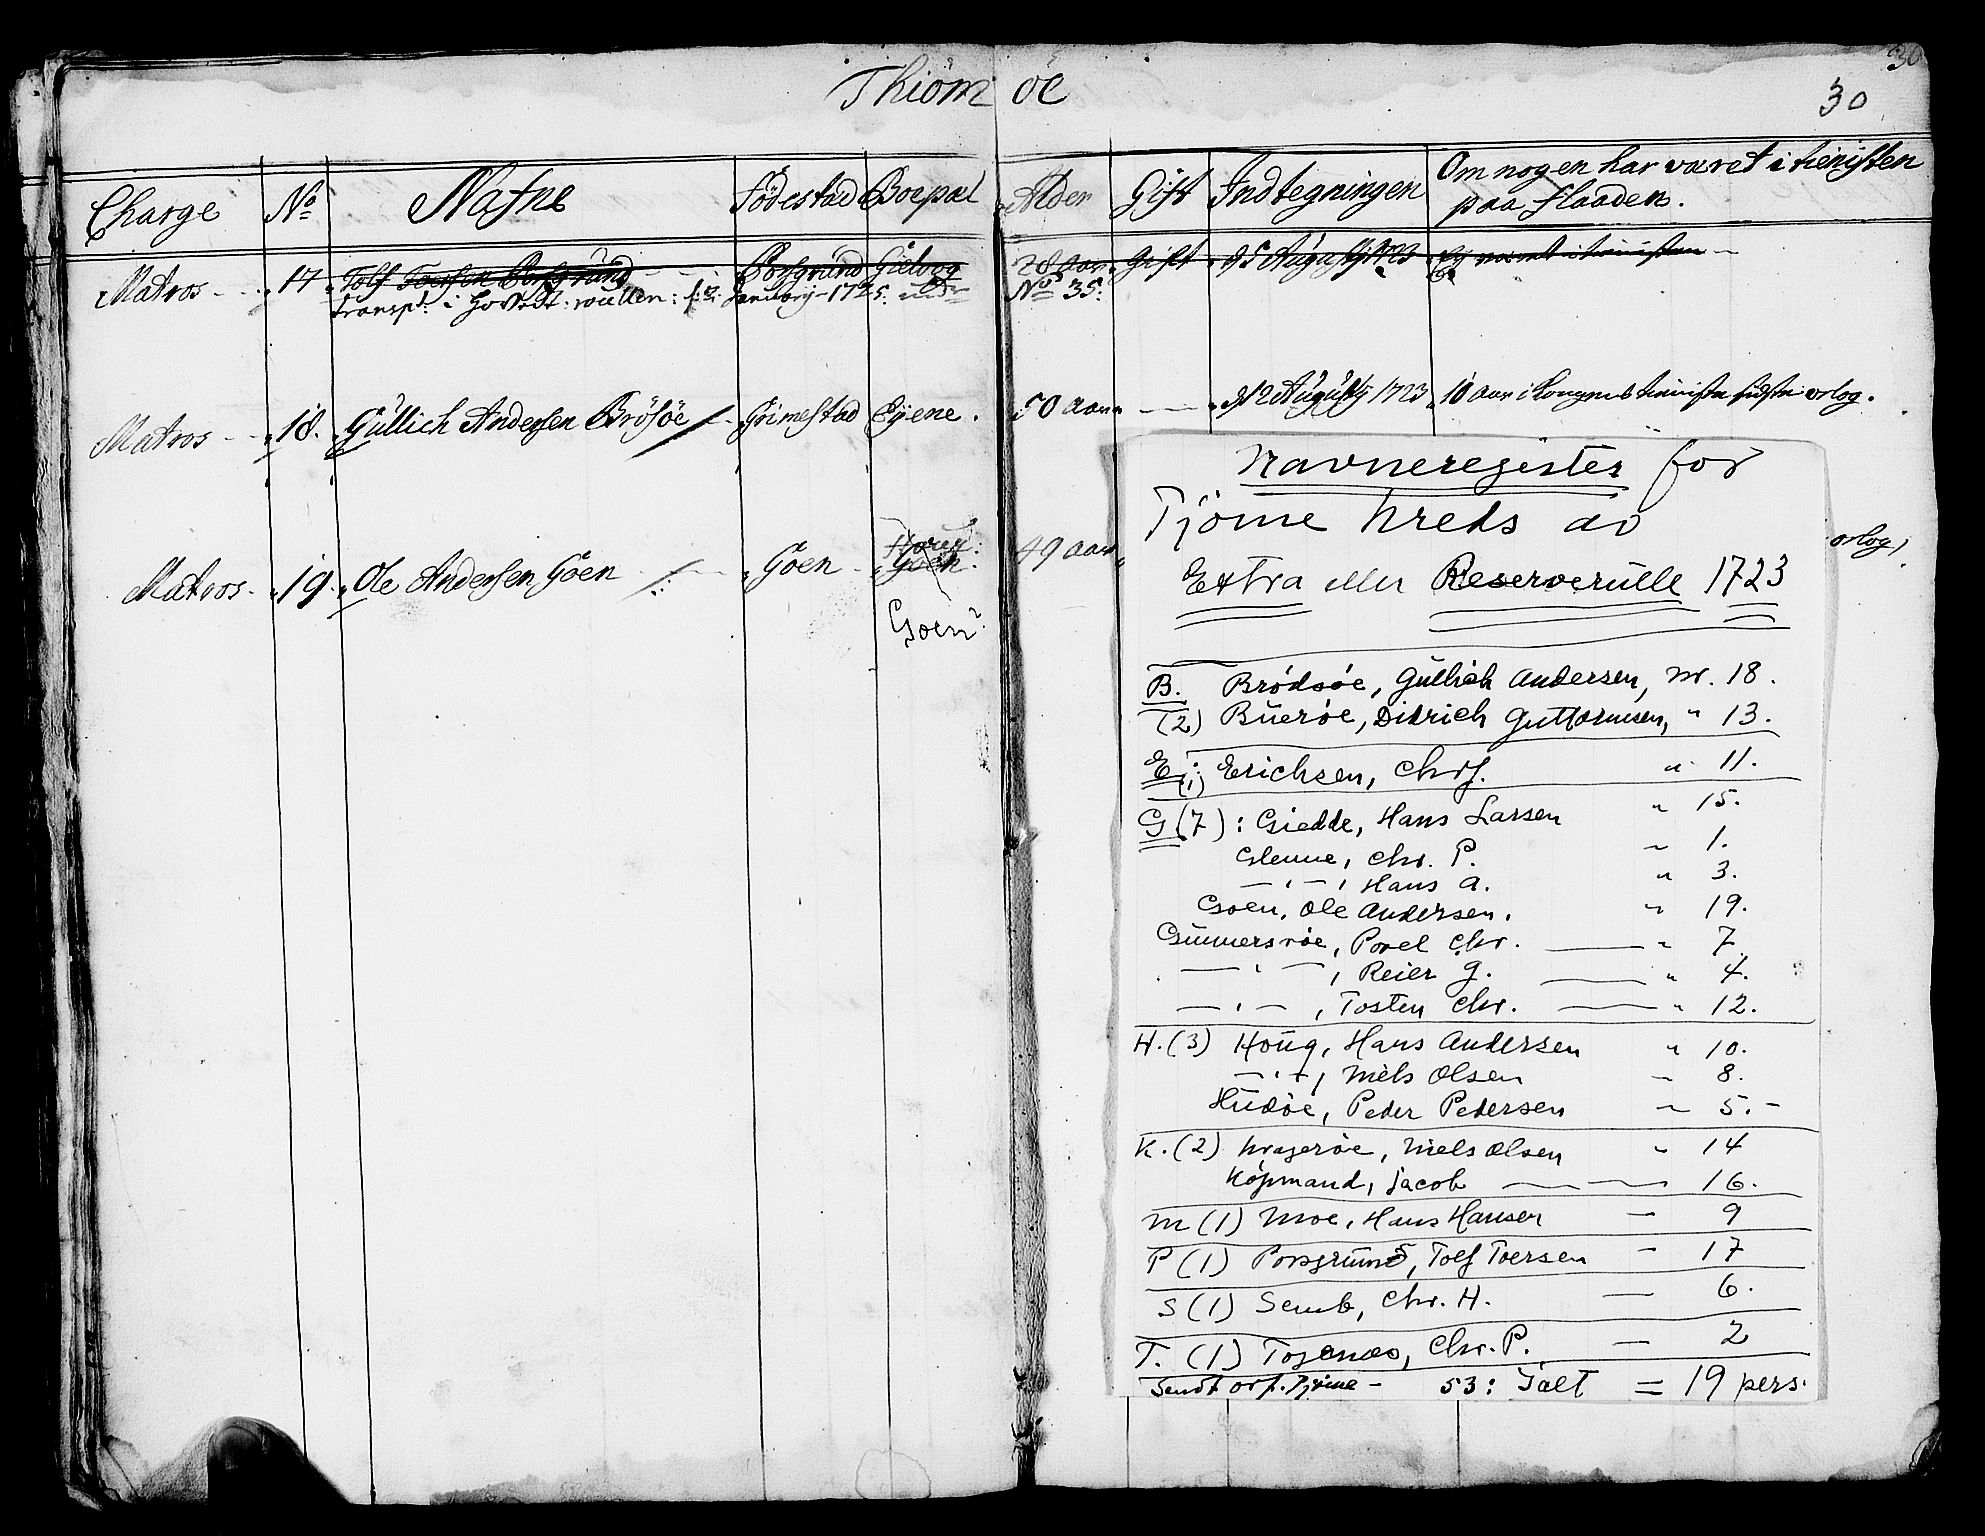 30
Thiöm öe
30
Charge No Nafne Födestæd Boepæl Alder Gift Indtegningen Om nogen har været i tienisten paa flaaden.
Matros 17 Tolf Toersen Porsgrund Porsgrund Gieloog 28 aar Gift d 5 Augustij 1723 Ej været i tienisten
transpt: i Hovedt: rullen: d: 2: Januarij 1725. under No 35:
Matros 18. Gullich Andersen Brösöe Grimestad Eÿene. 50 aar d 12 Augustij 1723 10 aar i Kongens tieniste sidste orlog.
Matros 19. Ole Andersen Göen Göen Göen. 49 aar orlog,
Goen?
Navneregister for
Tjöme Kreds av
Extra eller Reserverulle 1723
B. Brödsöe, Gullich Andersen, nr. 18.
(2) Bueröe, Didrich Guttormsen, " 13.
E. (1) Erichsen, Chrf. " 11.
G (7): Giedde, Hans Larsen " 15.
Glenne, Chr. P. " 1.
— " — , Hans A. " 3.
Goen, Ole Andersen. " 19.
Gunnersröe, Povel Chr. — " 7.
— " — , Reier G. — " 4.
— " — , Tosten Chr. — " 12.
H. (3) Houg, Hans Andersen " 10.
— " — , Niels Olsen " 8.
Hudöe, Peder Pedersen " 5. –
K. (2) Krageröe, Niels Olsen " 14
Köpmand, Jacob — 16.
M (1) Moe, Hans Hansen — 9
P (1) Porsgrund, Tolf Toersen — 17
S (1) Semb, Chr. H. — 6.
T. (1) Togenæs, Chr. P. — 2
Sendt orf. Tjöme – 53: Ialt = 19 pers.